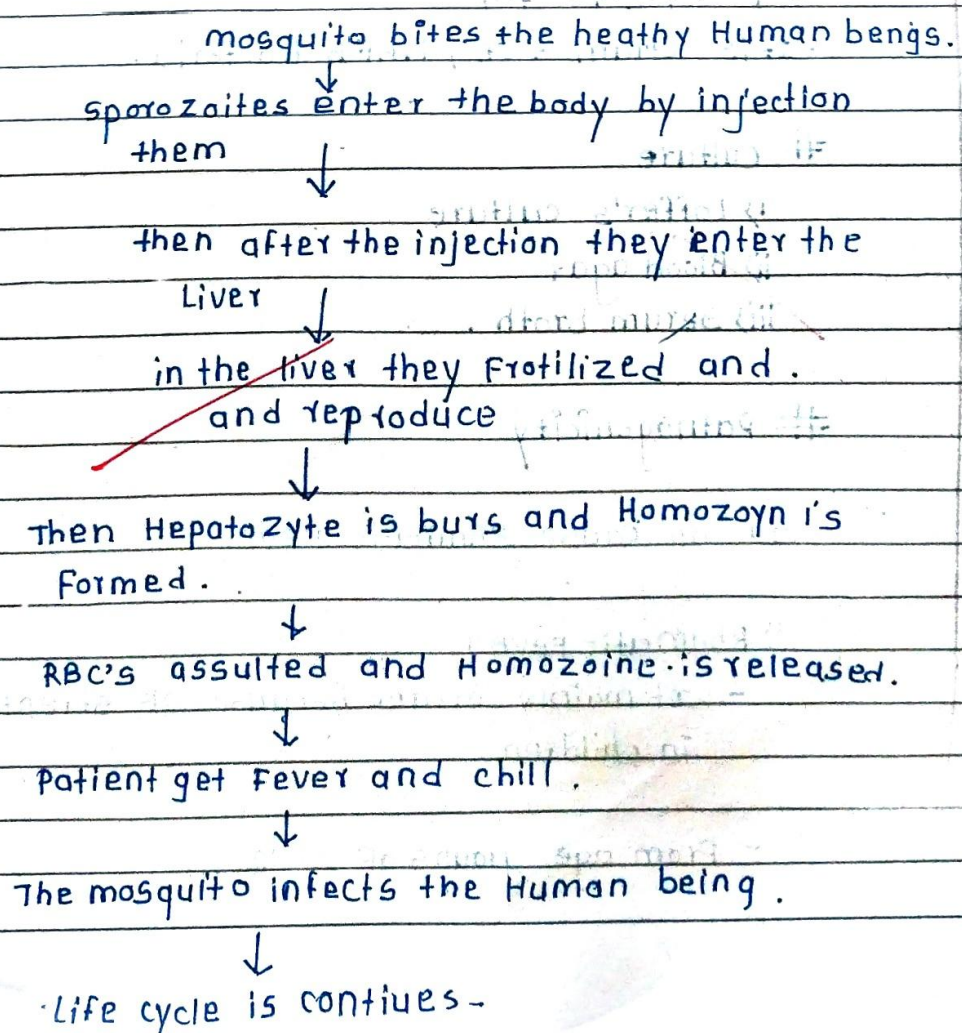 mosquito bites the heathy Human bengs.
↓
sporozoites enter the body by injection
them ↓
then after the injection they enter the
Liver ↓
in the liver they Frotilized and .
and reproduce
↓
Then Hepatozyte is burs and Homozoyn i's
Formed .
↓
RBC's assulted and Homozoine is released.
↓
Patient get Fever and chill .
↓
The mosquito infects the Human being .
↓
Life cycle is contiues -